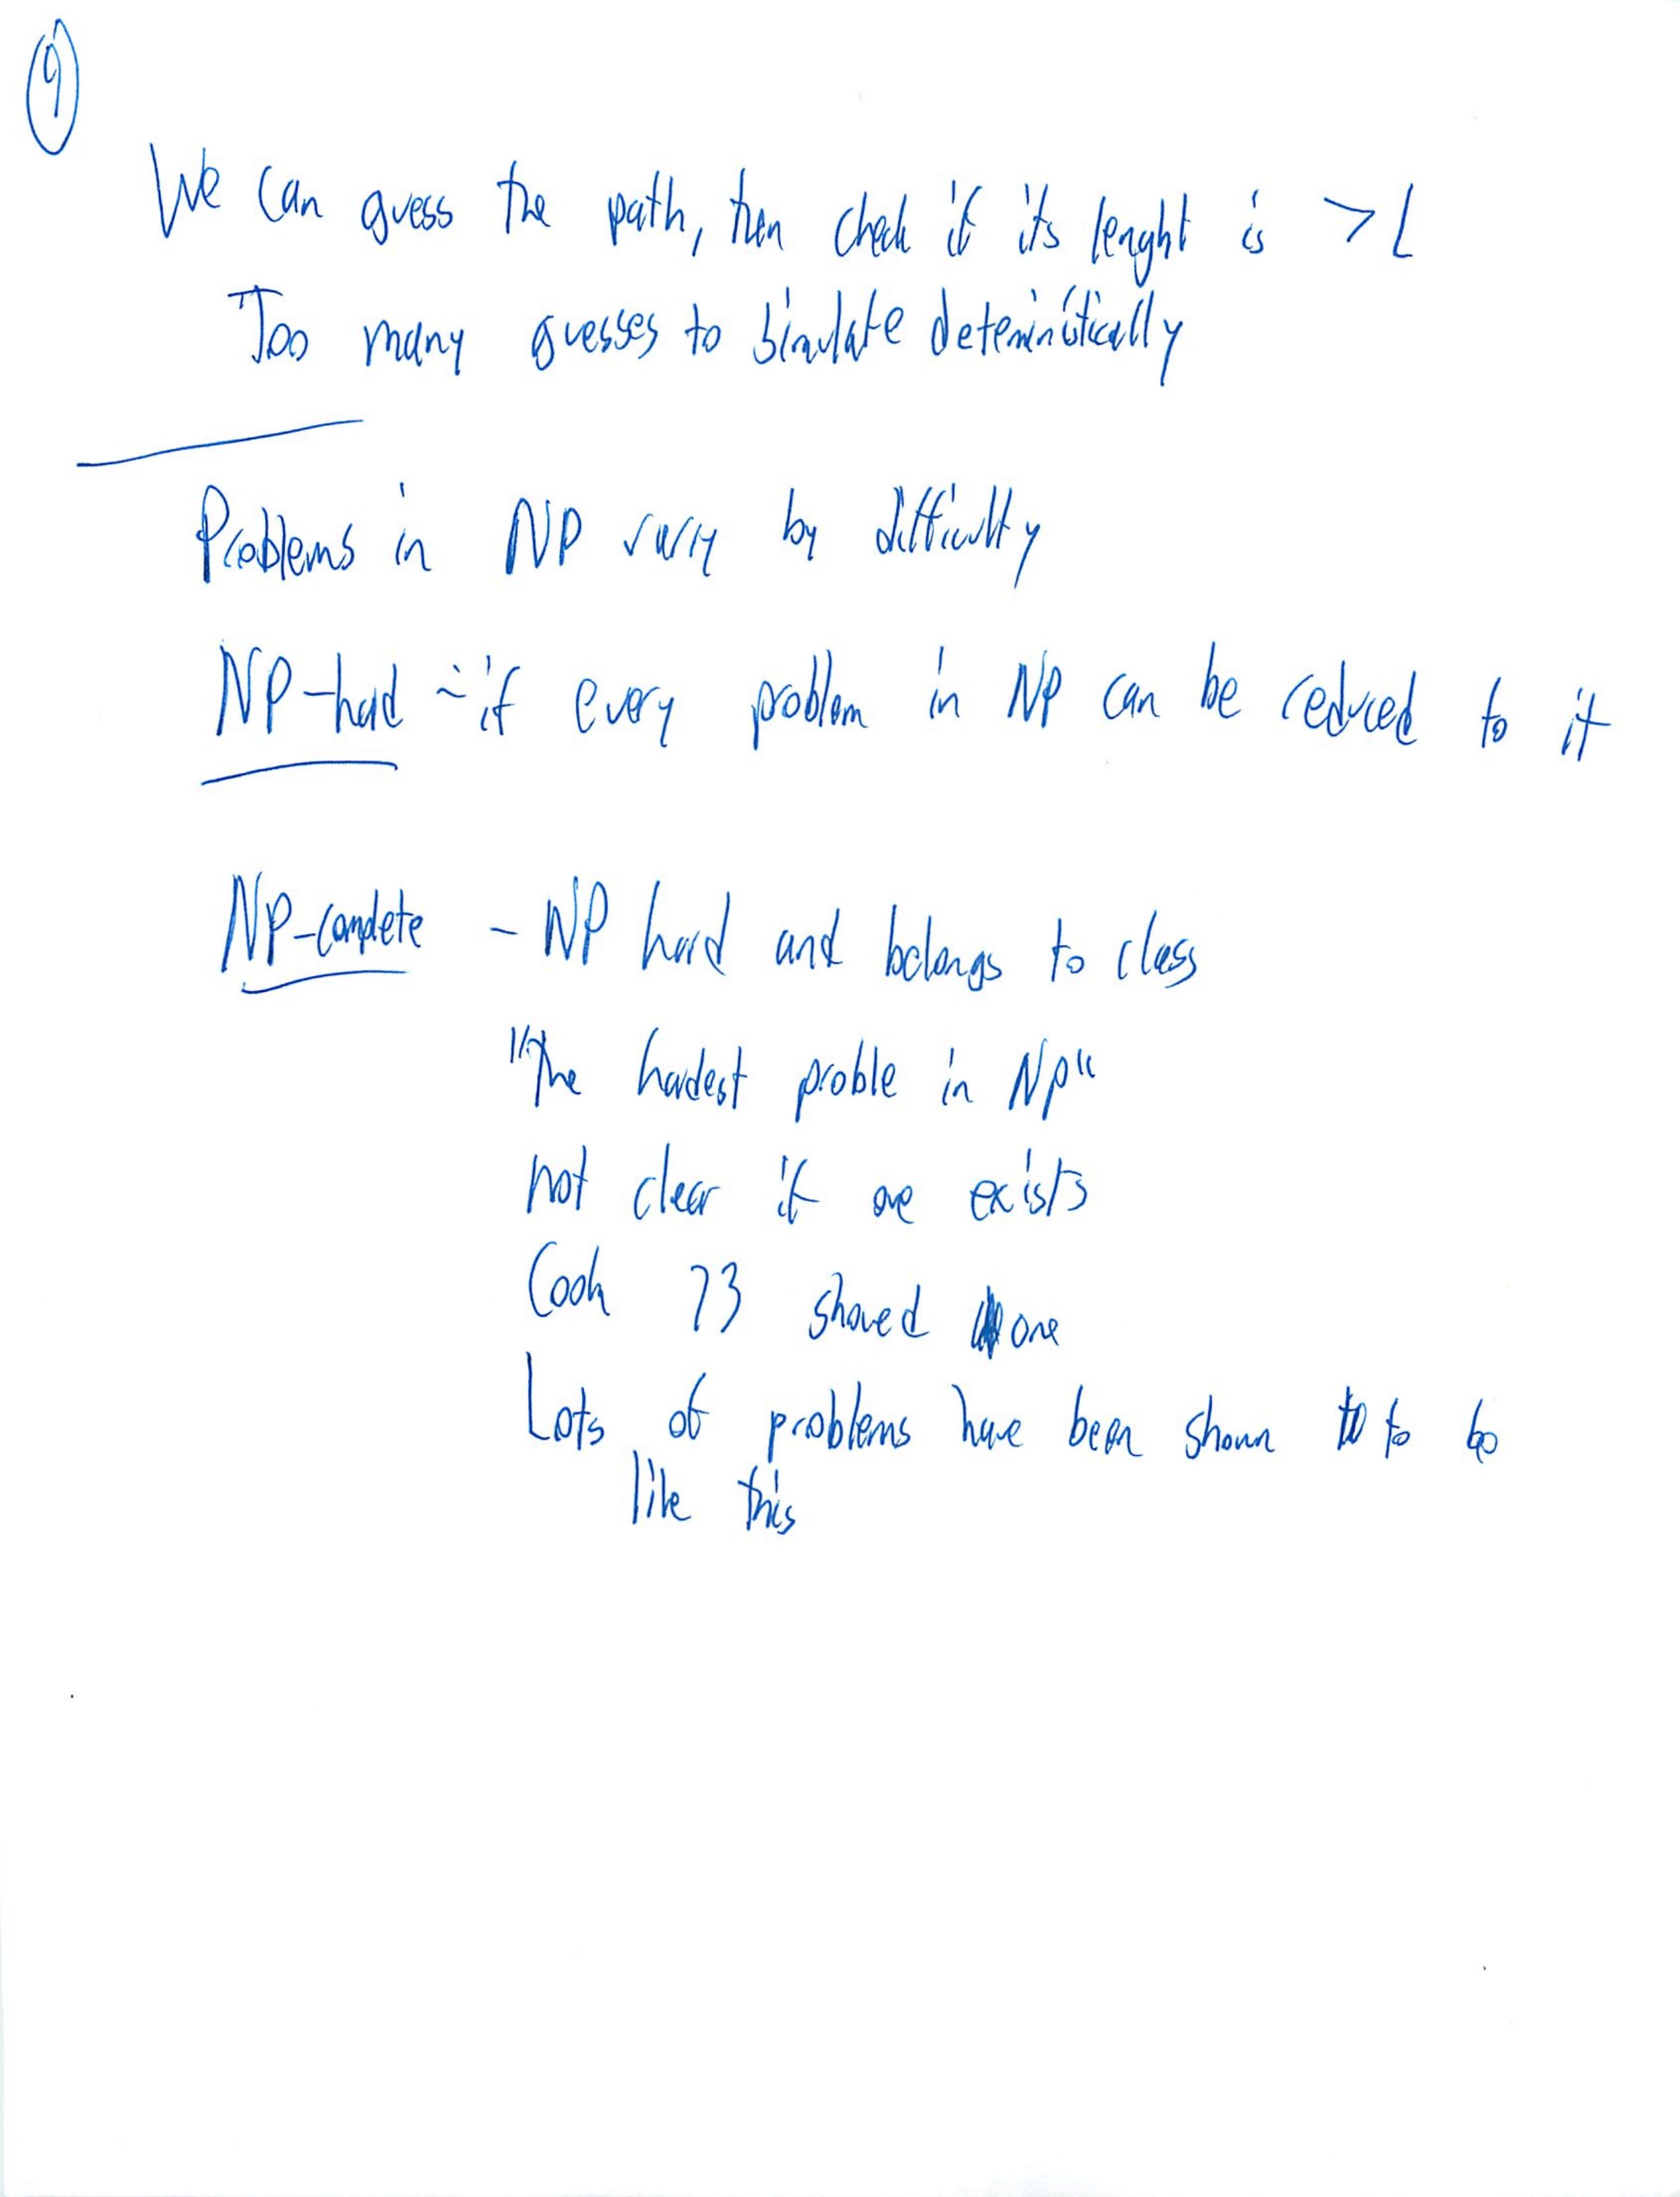 9
We can guess the path, then check if its lenght is > L
Too many guesses to simulate deterministically
Problems in NP vary by difficulty
NP-hard - if every problem in NP can be reduced to it
NP-complete - NP hard and belongs to class
"The hardest proble in NP"
not clear if one exists
Cook 73 showed one
Lots of problems have been shown to be
like this